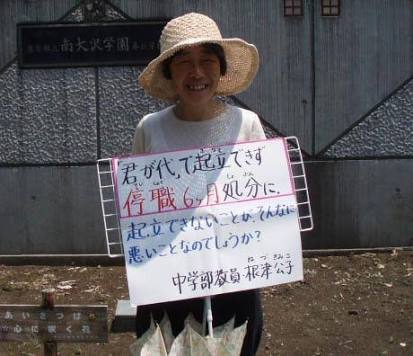 南大沢学園
君が代、で起立できず
停職6ヶ月処分に、
起立できないことが、そんなに
悪いことなのでしょうか?
ねづきみこ
中学部教員・根津公子
あいさつは
心に咲く花